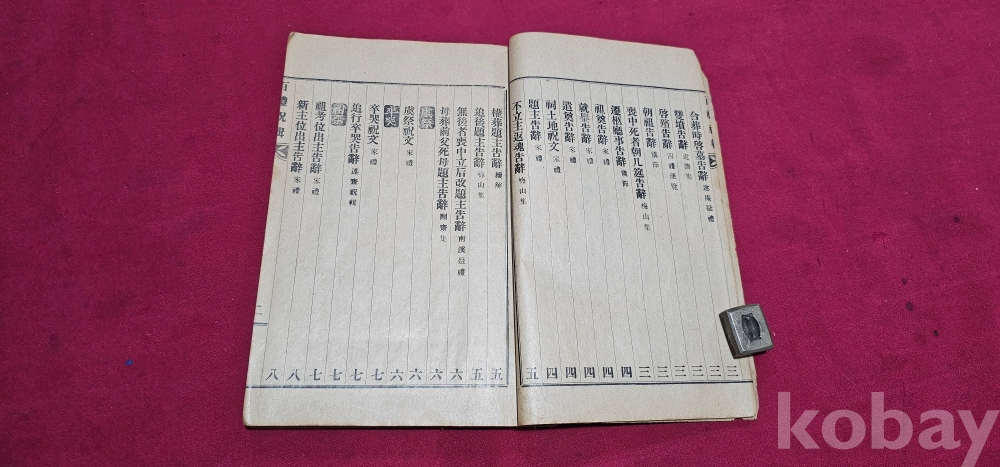 合葬時啓墓告辭 三
雙墳告辭 近齋集 三
啓殯告辭 四禮便覽 三
朝祖告辭 儀節 三
喪中死者朝几筵告辭 梅山集 三
遷柩廳事告辭 儀節 四
祖奠告辭 家禮 四
就轝告辭 家禮 四
遣奠告辭 家禮 四
祠土地祝文 家禮 四
題主告辭 家禮 五
不立主返魂告辭 梅山集
權葬題主告辭 五
追後題主告辭 梅山集 五
無後者喪中立后改題主告辭 南溪疑禮 六
母葬前父死母題主告辭 剛齋集 六
虞祭
虞祭祝文 家禮 六
卒哭
卒哭祝文 家禮 六
追行卒哭告辭 遂齋祝輯 七
祔祭
祖考位出主告辭 家禮
新主位出主告辭 家禮
百禮祝輯
二
kobay